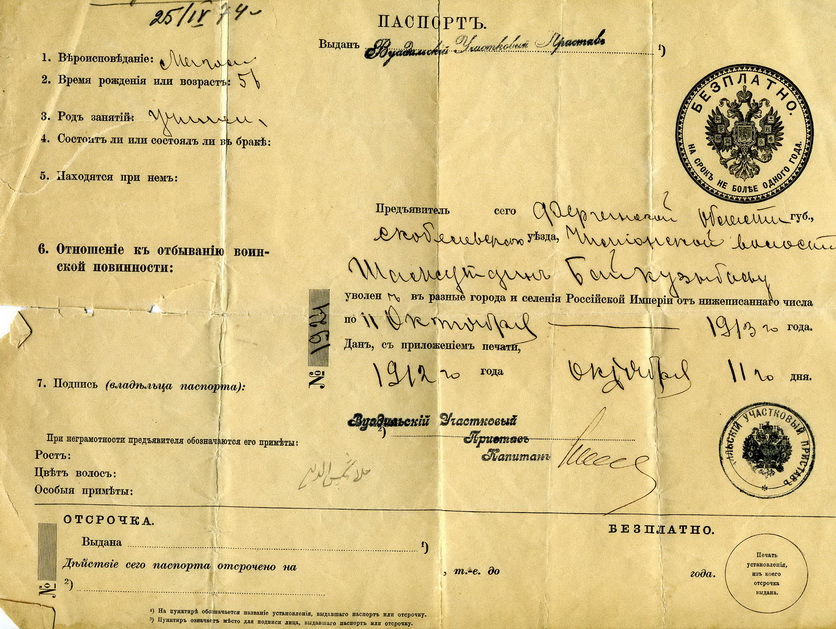 25/IV 74
ПАСПОРТЪ.
Выданъ Вуадильскій Участковый Приставъ ¹)
1. Вѣроисповѣданіе:
2. Время рожденія или возрастъ: 56
3. Родъ занятій:
4. Состоитъ ли или состоялъ ли въ бракѣ:
5. Находятся при немъ:
БЕЗПЛАТНО.
НА СРОКЪ НЕ БОЛѢЕ ОДНОГО ГОДА.
Предъявитель сего Ферганской Области губ.,
уѣзда, волости
6. Отношеніе къ отбыванію воин-
ской повинности:
уволен ъ въ разные города и селенія Россійской Имперіи отъ нижеписаннаго числа
по 11 Октября 1913 го года.
№ 1921
Данъ, съ приложеніемъ печати,
1912 го года октября 11 го дня.
7. Подпись (владѣльца паспорта):
Вуадильскій Участковый
²)
Приставъ
Капитанъ
УЧАСТКОВЫЙ ПРИСТАВЪ
При неграмотности предъявителя обозначаются его примѣты:
Ростъ:
Цвѣтъ волосъ:
Особыя примѣты:
ОТСРОЧКА.
БЕЗПЛАТНО.
Выдана ¹)
№
Дѣйствіе сего паспорта отсрочено на , т.-е. до года.
²)
Печать
установленія,
изъ коего
отсрочка
выдана.
¹) На пунктирѣ обозначается названіе установленія, выдавшаго паспортъ или отсрочку.
²) Пунктиръ означаетъ мѣсто для подписи лица, выдавшаго паспортъ или отсрочку.